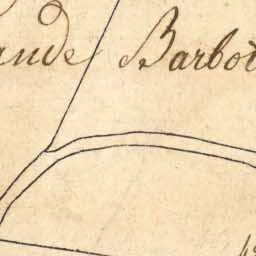 ande Barbot